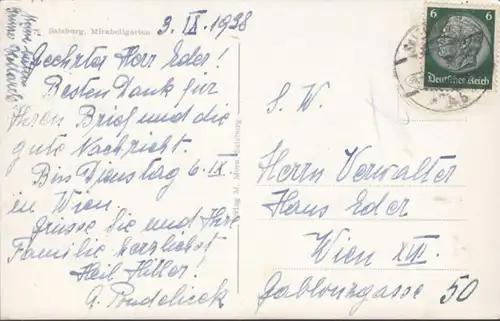 Salzburg, Mirabellgarten
3. IX. 1938
Geehrter Herr Eder!
Besten Dank für
Ihren Brief und die
gute Nachricht.
Bin Dienstag 6. IX
in Wien
grüsse Sie und Ihre
Familie herzlichst
Heil Hitler!
Verlag M. Salzburg
6 6
Deutsches Reich
S. W.
Herrn Verwalter
Hans Eder
Wien XVI.
Gablonzgasse 50